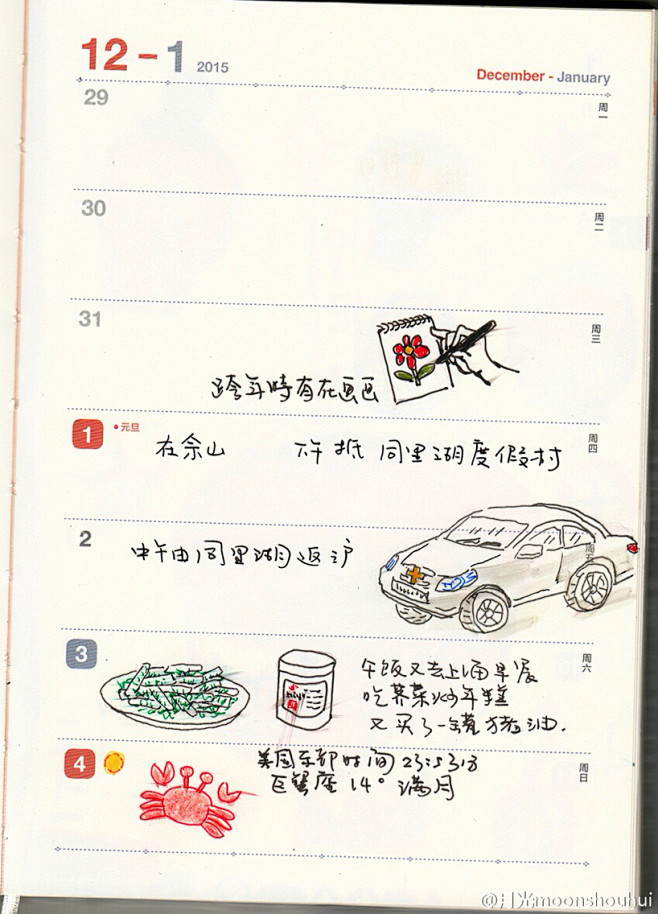 12-1 2015
December - January
29 周一
30 周二
31 周三
跨年時有在画画
1 元旦 周四
在佘山 下午抵同里湖度假村
2
中午由同里湖返沪
3 周六
午饭又去上海早
吃荠菜炒年糕
又买了一罐猪油.
4 周日
美国东部时间 23:53分
巨蟹座 14° 满月
@月光moonshouhui